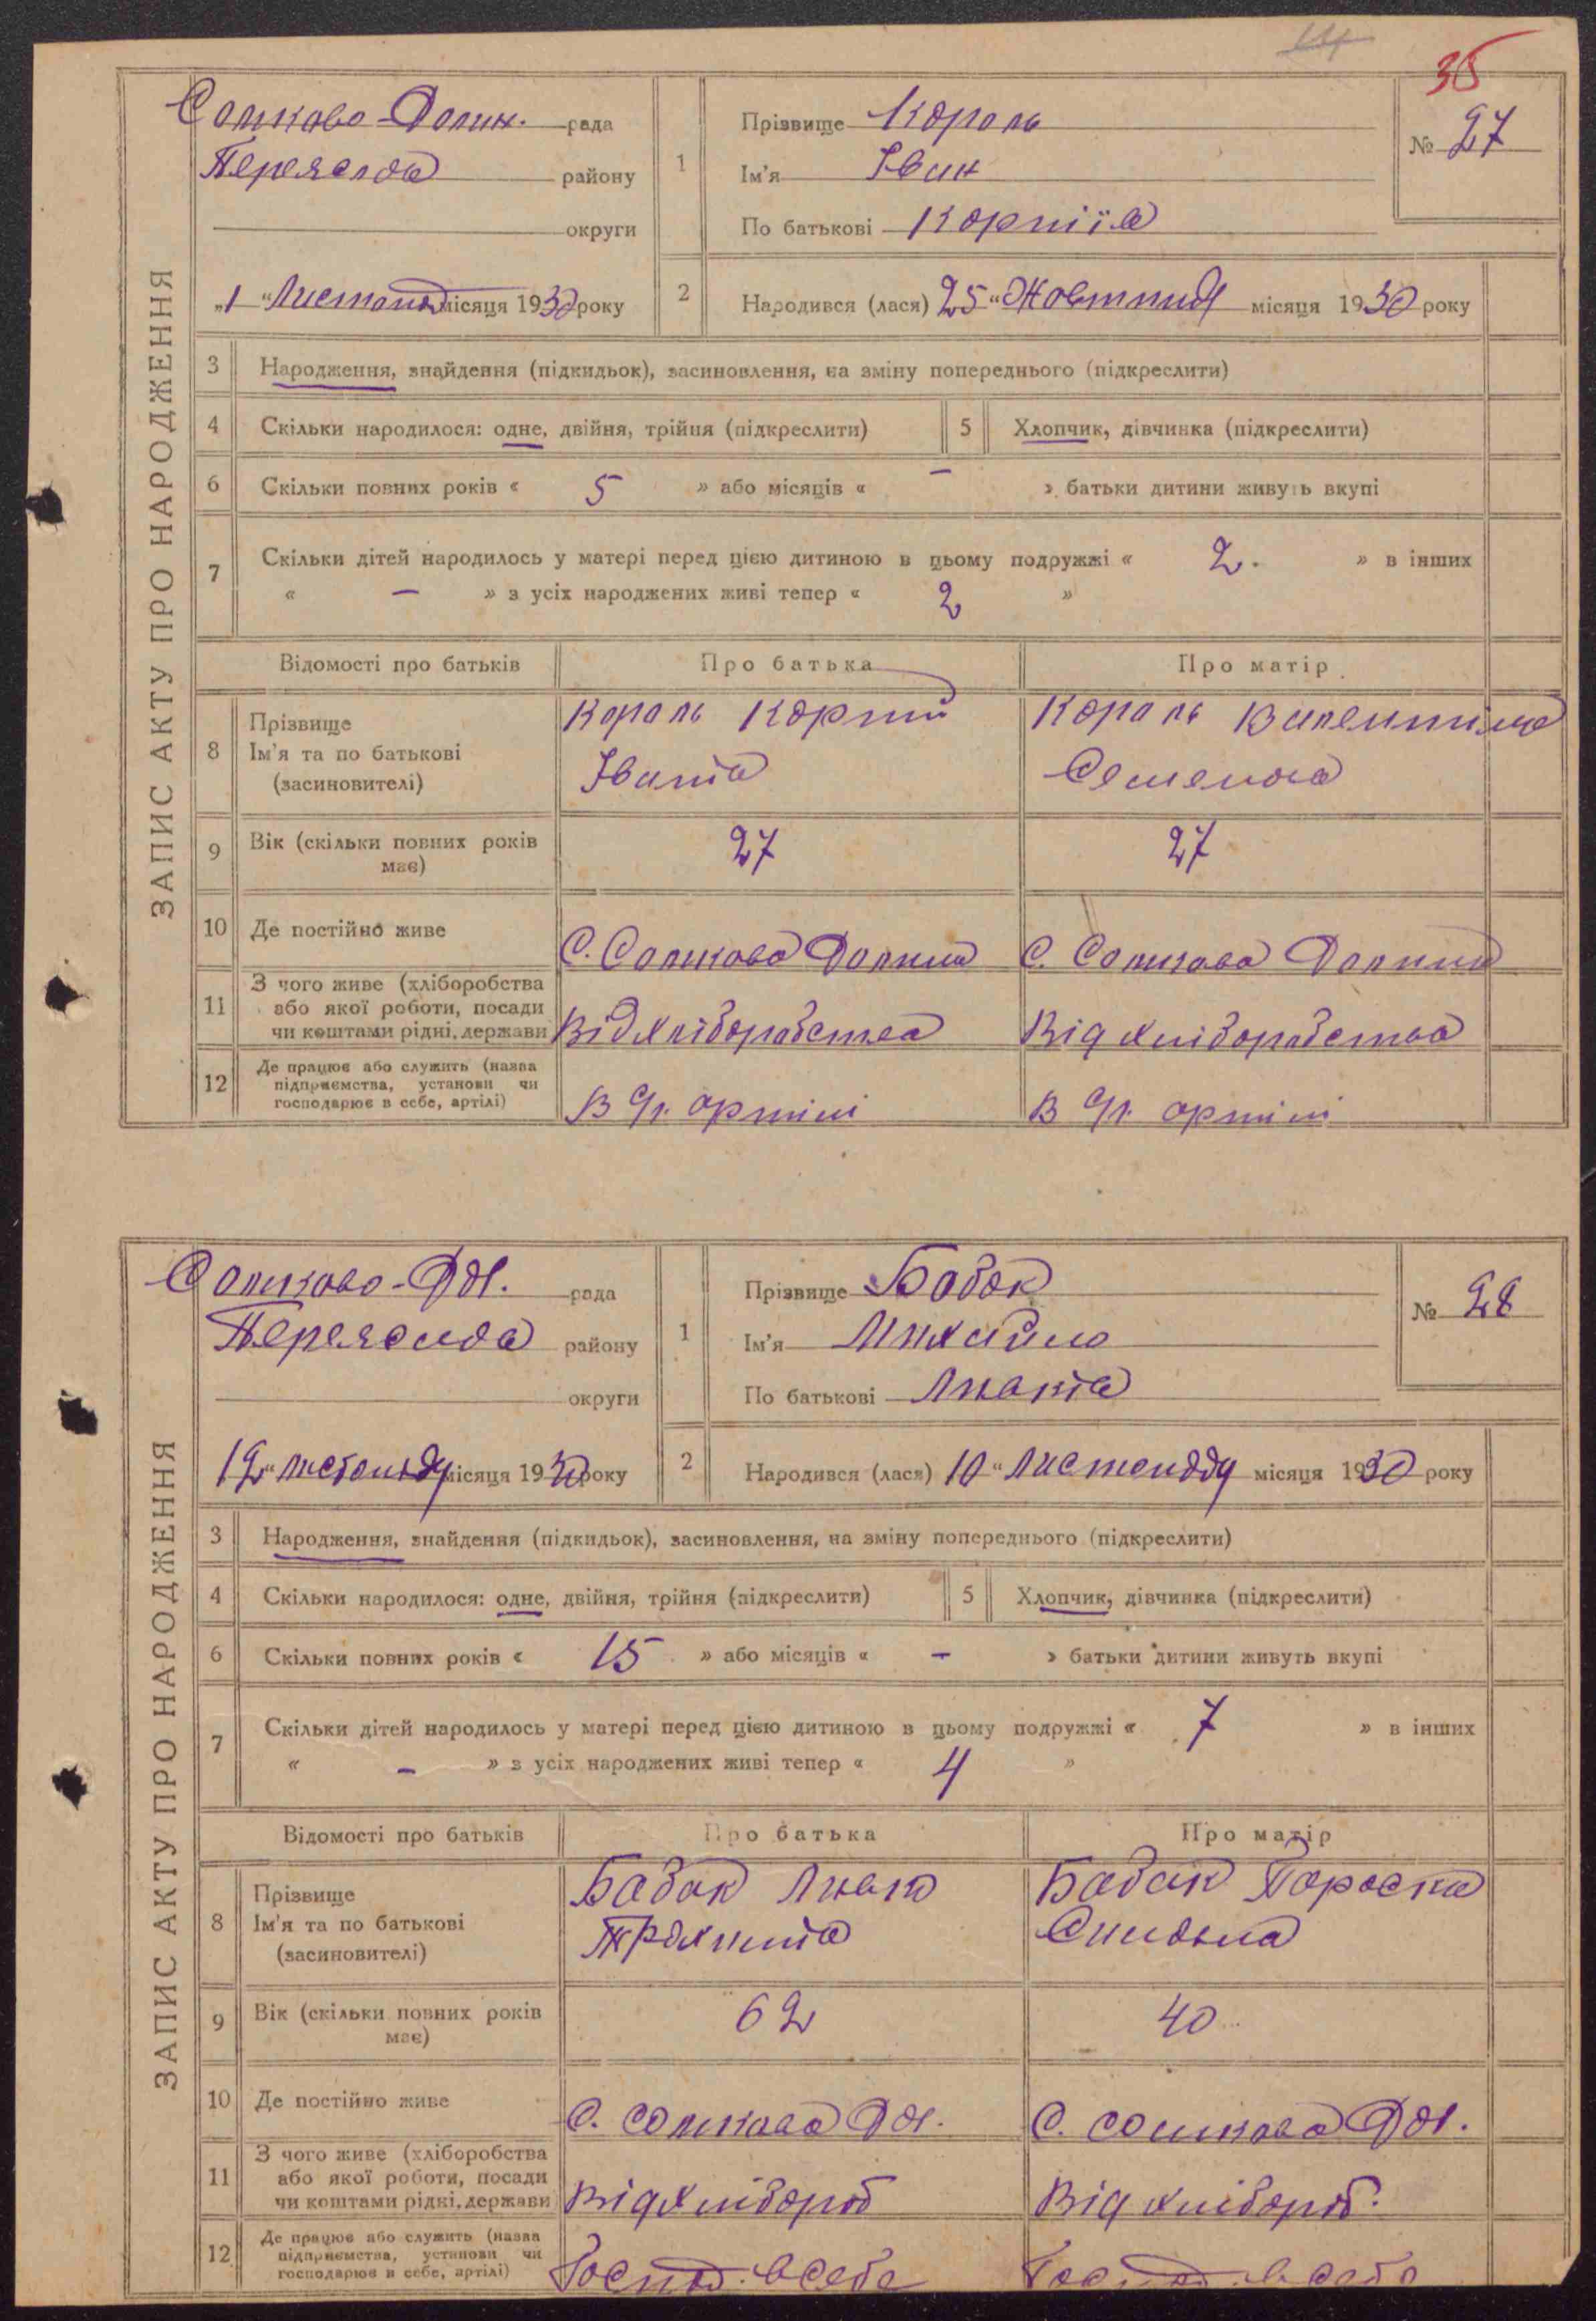 35
Сомково-Долин. рада
Переяслов району
округи
„1“ Листопад місяця 1930 року
1
Прізвище Король
Ім'я Іван
По батькові Корнїів
№ 27
2
Народився (лася) 25 “ Жовтня місяця 1930 року
ЗАПИС АКТУ ПРО НАРОДЖЕННЯ
3 Народження, знайдення (підкидьок), засиновлення, на зміну попереднього (підкреслити)
4 Скільки народилося: одне, двійня, трійня (підкреслити)
5 Хлопчик, дівчинка (підкреслити)
6 Скільки повних років « 5 » або місяців « – » батьки дитини живуть вкупі
7 Скільки дітей народилось у матері перед цією дитиною в цьому подружжі « 2. » в інших
« – » з усіх народжених живі тепер « 2 »
Відомості про батьків Про батька Про матір
8 Прізвище
Ім'я та по батькові
(засиновителі)
Король Корній
Іванів
Король Валентина
Семенова
9 Вік (скільки повних років
має)
27 27
10 Де постійно живе
С. Сомкова Долина С. Сомкова Долина
11 З чого живе (хліборобства
або якої роботи, посади
чи коштами рідні, держави
Від хліборобства Від хліборобства
12 Де працює або служить (назва
підприємства, установи чи
господарює в себе, артілі)
В артілі В артілі
Сомково-Дол. рада
Переяслов району
округи
12 “ листопаду місяця 1930 року
1
Прізвище Бабак
Ім'я Михайло
По батькові
№ 28
2
Народився (лася) 10 “ листопаду місяця 1930 року
ЗАПИС АКТУ ПРО НАРОДЖЕННЯ
3 Народження, знайдення (підкидьок), засиновлення, на зміну попереднього (підкреслити)
4 Скільки народилося: одне, двійня, трійня (підкреслити)
5 Хлопчик, дівчинка (підкреслити)
6 Скільки повних років « 15 » або місяців « – » батьки дитини живуть вкупі
7 Скільки дітей народилось у матері перед цією дитиною в цьому подружжі « 7 » в інших
« – » з усіх народжених живі тепер « 4 »
Відомості про батьків Про батька Про матір
8 Прізвище
Ім'я та по батькові
(засиновителі)
Бабак
Бабак Параска
9 Вік (скільки повних років
має)
62 40
10 Де постійно живе
С. Сомкова Дол. С. Сомкова Дол.
11 З чого живе (хліборобства
або якої роботи, посади
чи коштами рідні, держави
Від хлібороб Від хлібороб.
12 Де працює або служить (назва
підприємства, установи чи
господарює в себе, артілі)
Господ. в себе Господ. в себе